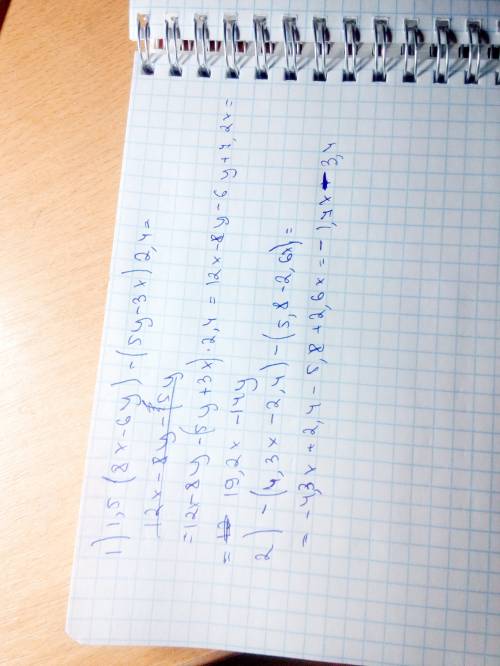 1) 1,5(8x-6y)-(5y-3x)2,4=
12x-8y-(5y
=12-8y-(5y+3x)·2,4=12x-8y-6y+7,2x=
= 19,2x-14y
2) -(4,3x-2,4)-(5,8-2,6x)=
= -4,3x+2,4-5,8+2,6x=-1,7x-3,4